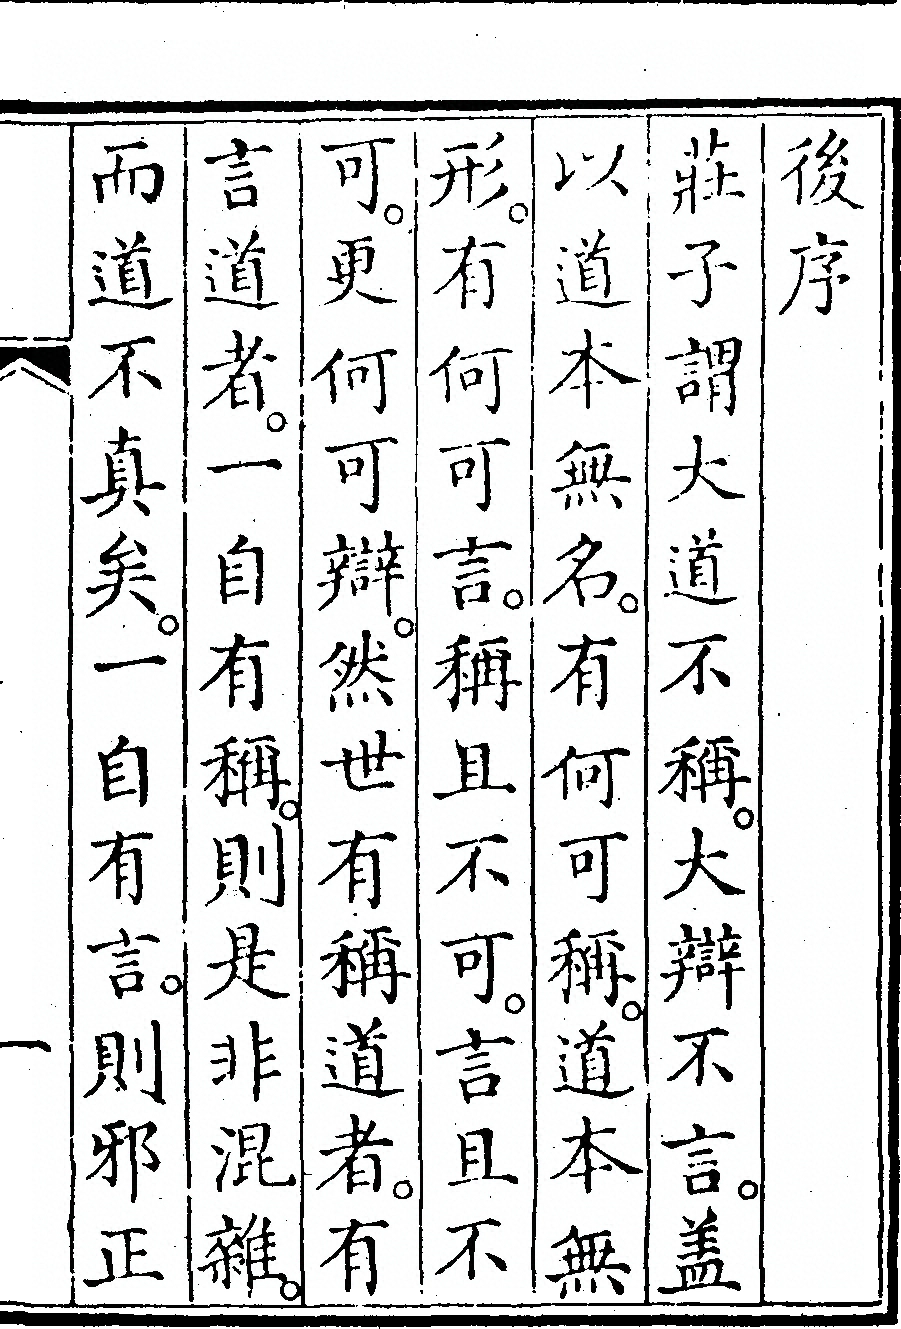 後序
莊子謂大道不稱。大辯不言。盖
以道本無名。有何可稱。道本無
形。有何可言。稱且不可。言且不
可。更何可辯。然世有稱道者。有
言道者。一自有稱。則是非混雜。
而道不真矣。一自有言。則邪正
一